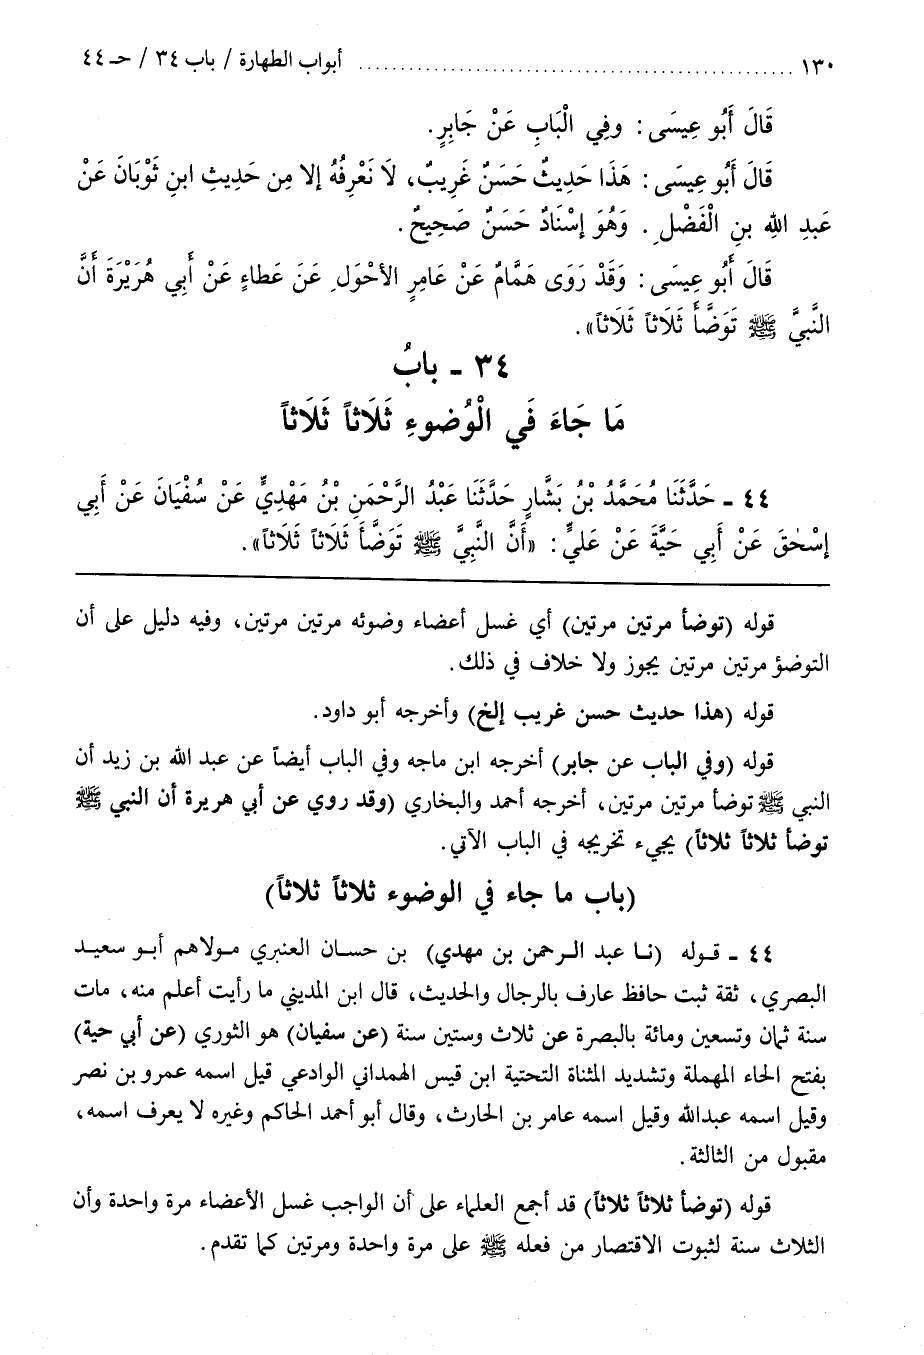 ١٣٠ ........................................................ أبواب الطهارة / باب ٣٤ / حـ ٤٤
قَالَ أَبُو عِيسَى: وفِي الْبَابِ عَنْ جَابِرٍ.
قَالَ أَبُو عِيسَى: هَذَا حَدِيثٌ حَسَنٌ غَرِيبٌ، لَا نَعْرِفُهُ إلا مِن حَدِيثِ ابنِ ثَوْبَانَ عَنْ
عَبدِ اللهِ بنِ الْفَضْلِ. وَهُوَ إسْنَادٌ حَسَنٌ صَحِيحٌ.
قَالَ أَبُو عِيسَى: وَقَدْ رَوَى هَمَّامٌ عَنْ عَامِرٍ الأَحْوَلِ عَنَ عَطاءٍ عَنْ أبِي هُرَيْرَةَ أَنَّ
النَّبِيَّ ﷺ تَوَضَّأَ ثَلَاثاً ثَلَاثاً».
٣٤ ـ بابُ
مَا جَاءَ فَي الْوُضوءِ ثَلَاثاً ثَلَاثاً
٤٤ ـ حَدَّثَنَا مُحَمَّدُ بْنُ بَشَّارٍ حَدَّثَنَا عَبْدُ الرَّحْمَنِ بْنُ مَهْدِيٍّ عَنْ سُفْيَانَ عَنْ أَبِي
إسْحٰقَ عَنْ أبِي حَيَّةَ عَنْ عَلِيٍّ: «أَنَّ النَّبِيَّ ﷺ تَوَضَّأَ ثَلَاثاً ثَلَاثاً».
قوله (توضأ مرتين مرتين) أي غسل أعضاء وضوئه مرتين مرتين، وفيه دليل على أن
التوضؤ مرتين مرتين يجوز ولا خلاف في ذلك.
قوله (هذا حديث حسن غريب إلخ) وأخرجه أبو داود.
قوله (وفي الباب عن جابر) أخرجه ابن ماجه وفي الباب أيضاً عن عبد الله بن زيد أن
النبي ﷺ توضأ مرتين مرتين، أخرجه أحمد والبخاري (وقد روي عن أبي هريرة أن النبي ﷺ
توضأ ثلاثاً ثلاثاً) يجيء تخريجه في الباب الآتي.
(باب ما جاء في الوضوء ثلاثاً ثلاثاً)
٤٤ ـ قوله (نا عبد الرحمن بن مهدي) بن حسان العنبري مولاهم أبو سعيد
البصري، ثقة ثبت حافظ عارف بالرجال والحديث، قال ابن المديني ما رأيت أعلم منه، مات
سنة ثمان وتسعين ومائة بالبصرة عن ثلاث وستين سنة (عن سفيان) هو الثوري (عن أبي حية)
بفتح الحاء المهملة وتشديد المثناة التحتية ابن قيس الهمداني الوادعي قيل اسمه عمرو بن نصر
وقيل اسمه عبدالله وقيل اسمه عامر بن الحارث، وقال أبو أحمد الحاكم وغيره لا يعرف اسمه،
مقبول من الثالثة.
قوله (توضأ ثلاثاً ثلاثاً) قد أجمع العلماء على أن الواجب غسل الأعضاء مرة واحدة وأن
الثلاث سنة لثبوت الاقتصار من فعله ﷺ على مرة واحدة ومرتين كما تقدم.